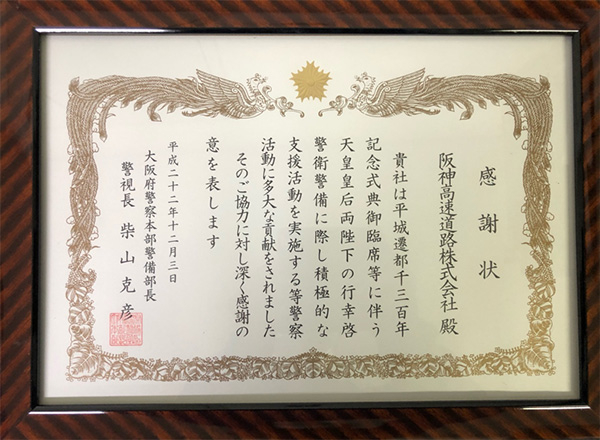 感謝状
阪神高速道路株式会社 殿
貴社は平城遷都千三百年
記念式典御臨席等に伴う
天皇皇后両陛下の行幸啓
警衛警備に際し積極的な
支援活動を実施する等警察
活動に多大な貢献をされました
そのご協力に対し深く感謝の
意を表します
平成二十二年十二月三日
大阪府警察本部警備部長
警視長 柴山克彦